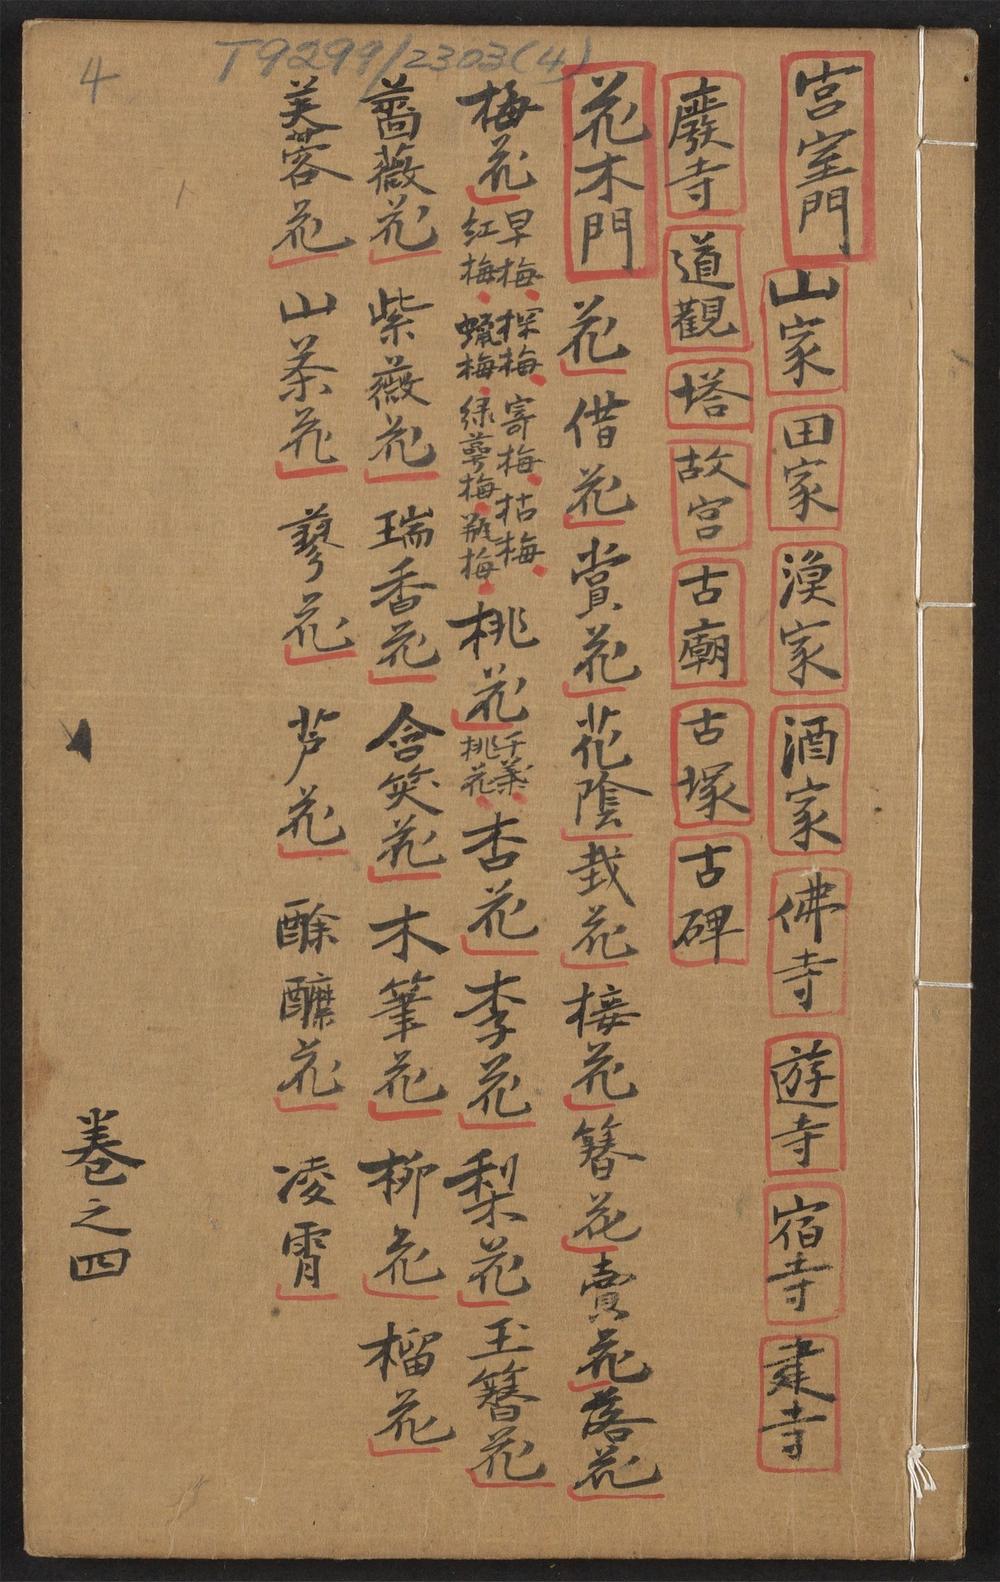 T9299/2303(4)
4
宮室門 山家 田家 漁家 酒家 佛寺 遊寺 宿寺 建寺
廢寺 道觀 塔 故宮 古廟 古塚 古碑
花木門 花 借花 賞花 花陰 栽花 接花 簪花 賣花 落花
梅花 早梅、探梅、寄梅、枯梅、紅梅、蠟梅、绿萼梅、瓶梅、桃花 千葉桃花、杏花 李花 梨花 玉簪花
薔薇花 紫薇花 瑞香花 含笑花 木筆花 柳花 榴花
芙蓉花 山茶花 蓼花 芦花 酴醿花 凌霄
卷之四